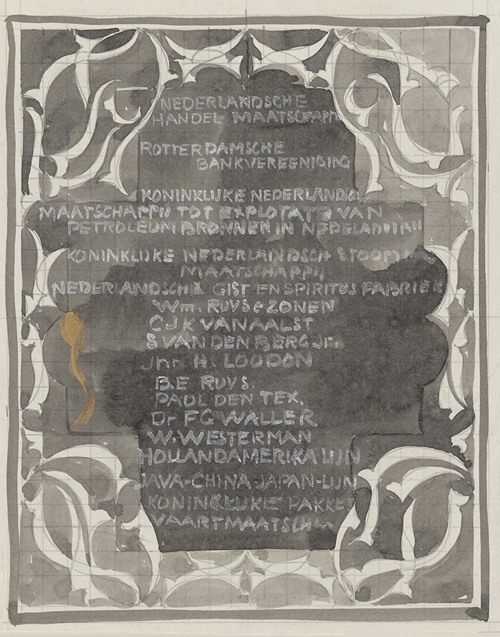 NEDERLANDSCHE
HANDEL MAATSCHAPP
ROTTERDAMSCHE
BANKVEREENIGING
KONINKLIJKE NEDERLANDS
MAATSCHAPPIJ TOT EXPLOTATE VAN
PETROLEUM BRONNEN IN
KONINKLIJKE NEDERLANDSCH
MAATSCHAPPIJ
NEDERLANDSCHE GIST EN SPIRITUS FABRIEK
Wm. RUYS & ZONEN
C.J.K VAN AALST
S VAN DEN BERG Jr.
Jhr. H. LOUDON
B.E RUYS.
PAUL DEN TEX.
Dr FG WALLER
W. WESTERMAN
HOLLANDAMERIKA LIJN
JAVA-CHINA-JAPAN-LIJN
KONINKLIJKE PAKKET
VAARTMAATSCH